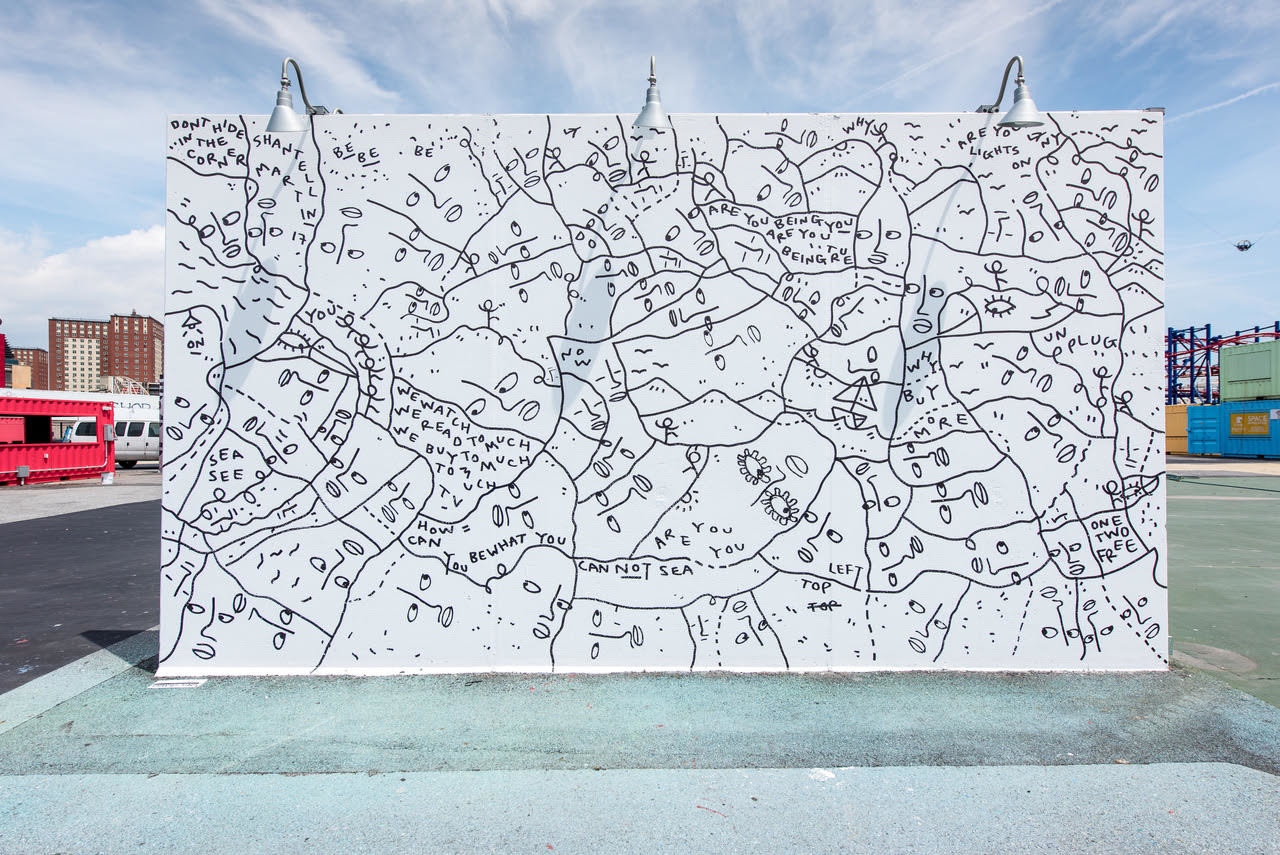 DONT HIDE
IN THE
CORNER
SHANTELL
MARTIN
17
BE BE BE
WHY
ARE YOU
LIGHTS
ON
NY
ARE YOU BEING YOU
ARE YOU
BEING
ON
YOU
NOW
UNPLUG
WHY
BUY
MORE
WE WATCH
WE READ TO MUCH
WE BUY TO MUCH
TO MUCH
TV
SEA
SEE
HOW =
CAN
YOU BE WHAT YOU
CAN NOT SEA
ARE YOU
ARE YOU
LEFT
TOP
TOP
ONE
TWO
FREE
SPACE